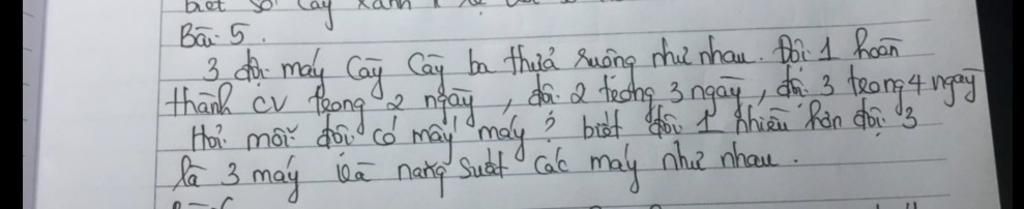 biết số cây xanh
Bài 5.
3 đội máy cày cày ba thửa ruộng như nhau. Đội 1 hoàn
thành cv trong 2 ngày, đội 2 trong 3 ngày, đội 3 trong 4 ngày
Hỏi mỗi đội có mấy máy? biết đội 1 nhiều hơn đội 3
là 3 máy và năng suất các máy như nhau.